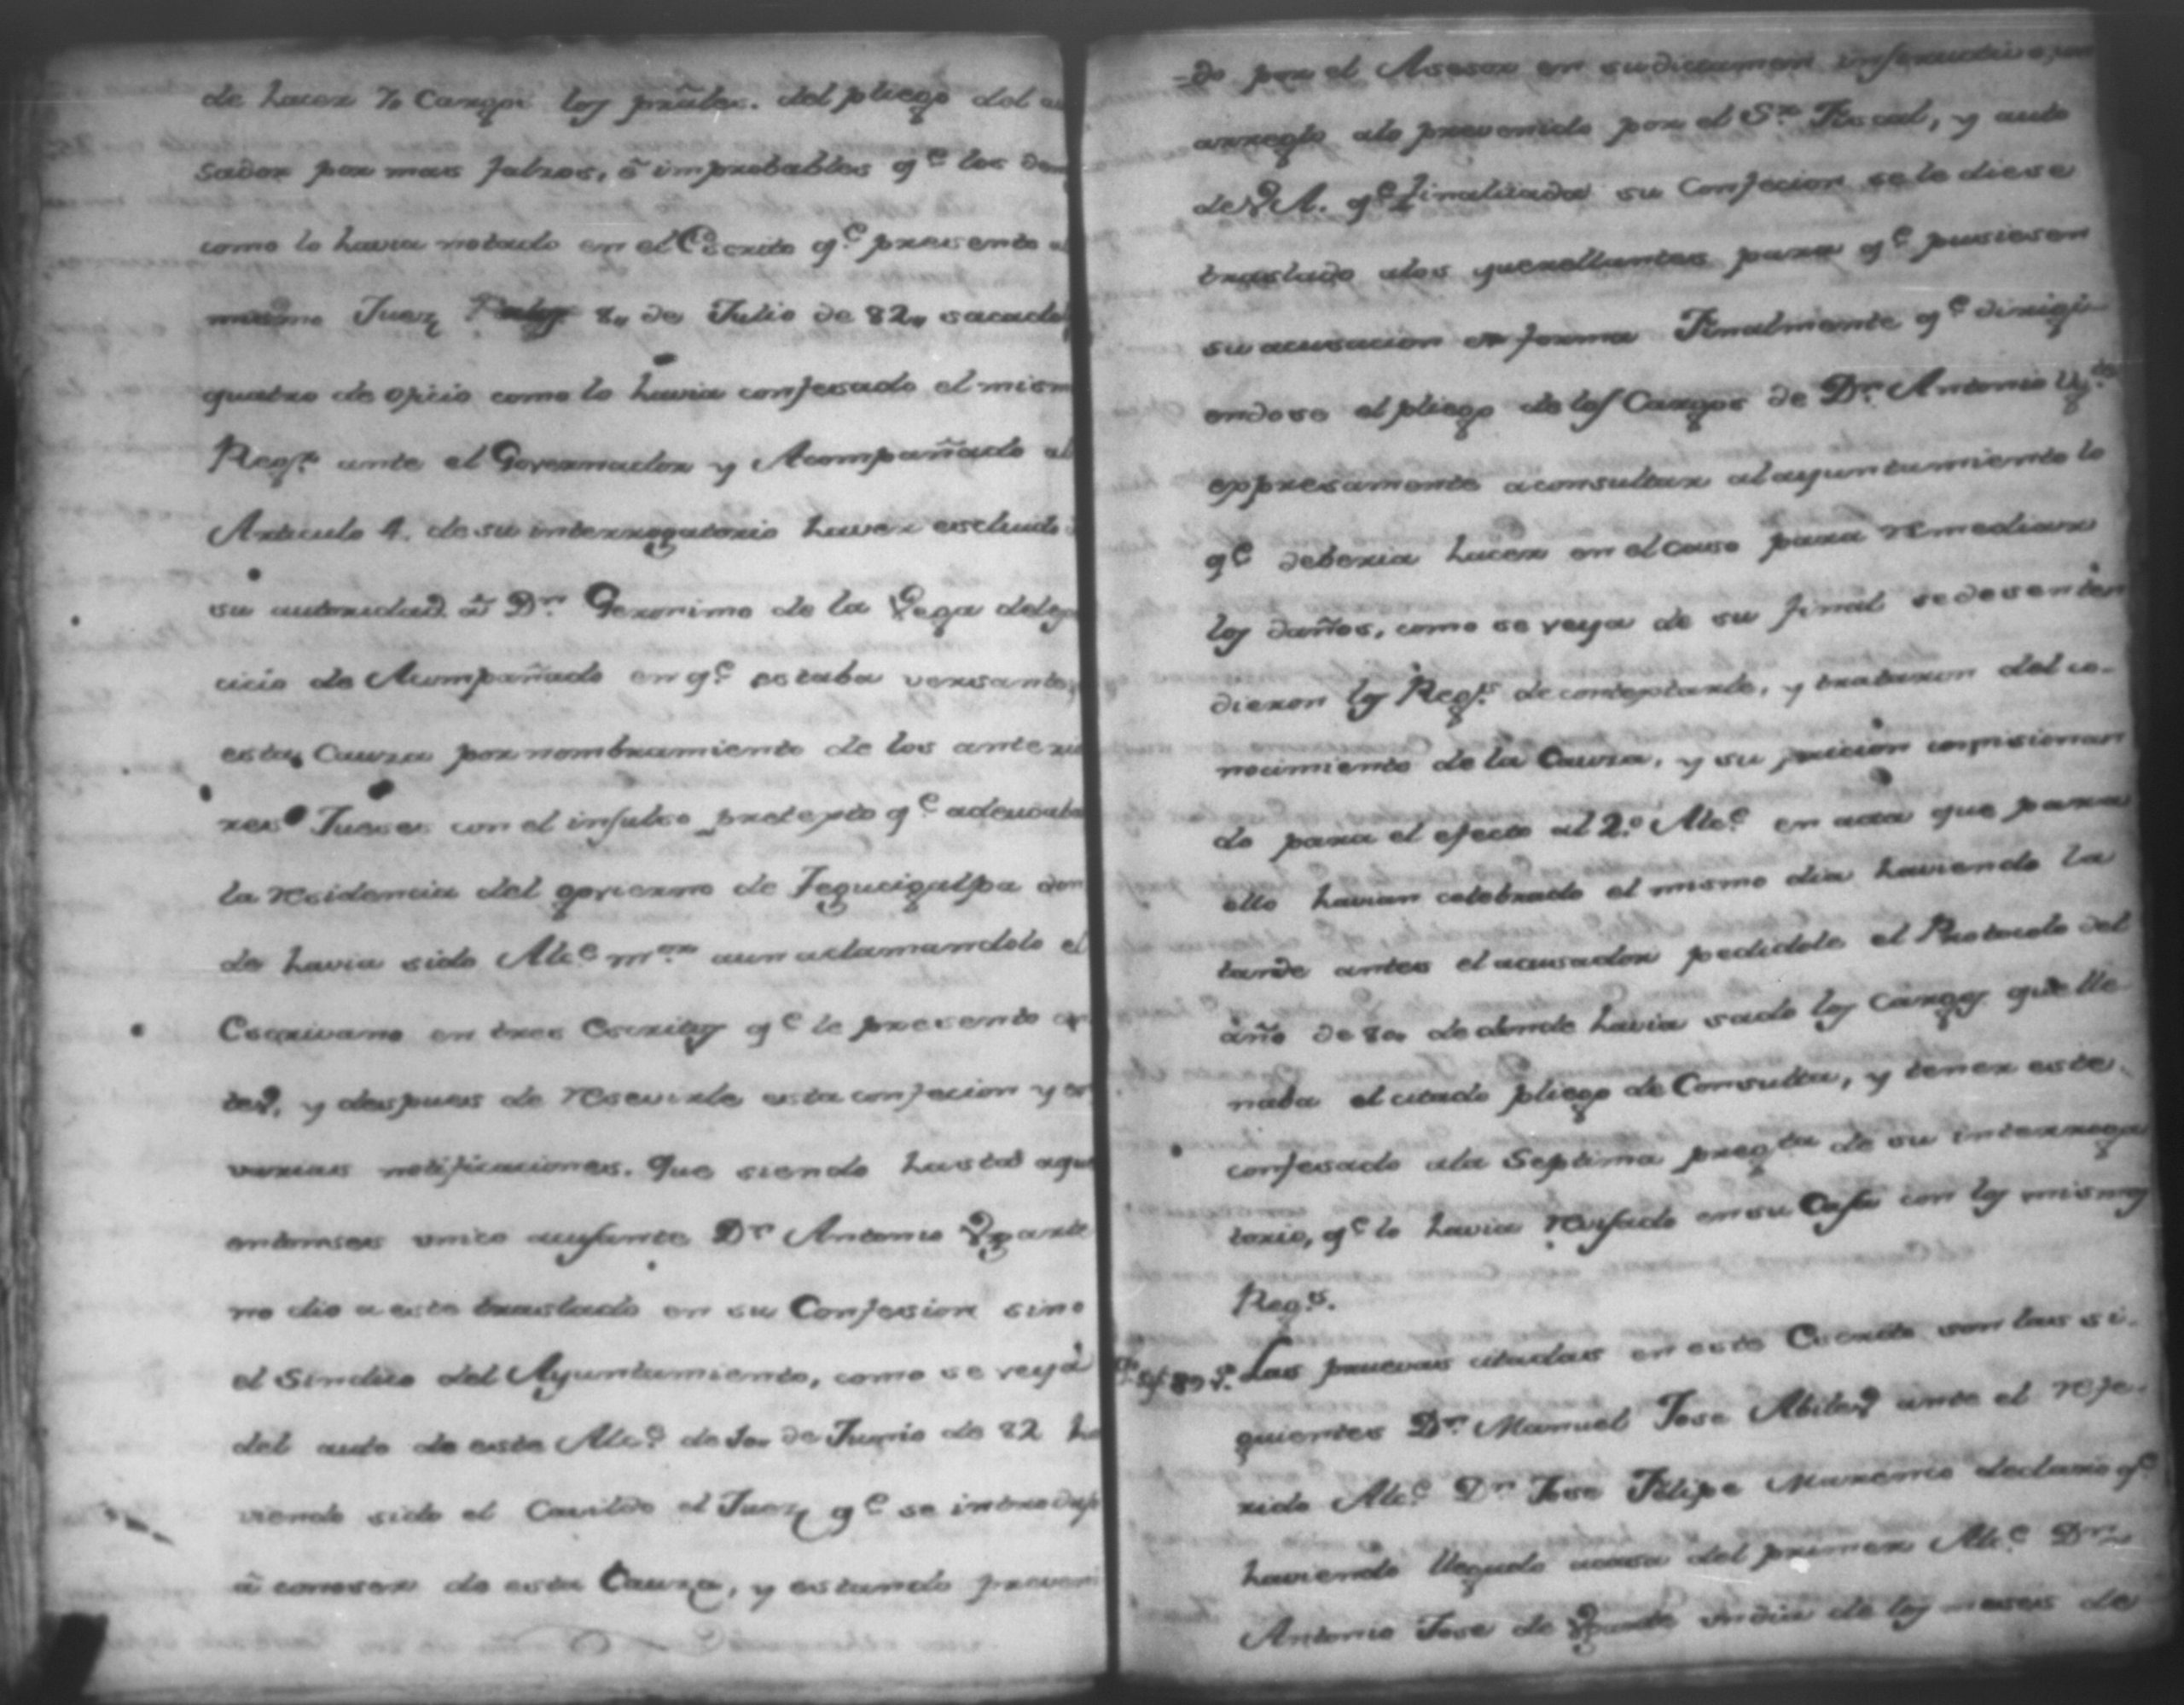 de hacer 70 Cargos los prãles. del pliego del acu
sador por mas falzos, ó improbables q.e los dem
como lo havia notado en el Escrito q.e presento al
mismo Juez 8,, de Julio de 82,, sacado
quatro de oficio como lo havia confesado el mism
Reg.r ante el Governador y Acompañado al
Articulo 4. de su interrogatorio haver escluido
su autoridad. á D.n Geronimo de la Vega del eg
cicio de Acompañado en q.e estaba versante
esta Cauza por nombramiento de los anterio
res Jueses con el insulso pretexto q.e adeudaba
la residencia del govierno de Tegucigalpa don
de havia sido Alc.e m.or aun aclamandolo el
Escrivano en tres Escritos q.e le presento an
tes, y despues de resevirle esta confecion y en
varias notificaciones. Que siendo hasta aqui
entonses unico ausante D.n Antonio Vgarte
no dio a este traslado en su Confesion sino
el Sindico del Ayuntamiento, como se veya
del auto de este Alc.e de 10,, de Junio de 82 ha
viendo sido el Cavildo el Juez q.e se introdujo
á conoser de esta Cauza, y estando preveni
-do por el Asesor en su dictamen infructuoso, con
arreglo alo prevenido por el S.or Fiscal, y auto
de V.A. q.e finalizada su Confecion se le diese
traslado alos querellantes para q.e pusiesen
su acusacion en forma Finalmente q.e dirigi-
endose el pliego de los Cargos de D.n Antonio Vg.te
expresamente aconsultar al ayuntamiento lo
q.e deberia hacer en el caso para remediar
los daños, como se veya de su final se desenten
dieron los Reg.s de contextarle, y trataron del co-
nocimiento de la Cauza, y su pricion comisionan
do para el efecto al 2.o Alc.e en acta que para
ello havian celebrado el mismo dia haviendo la
tarde antes el acusador pedidole el Protocolo del
año de 80,, de donde havia sado los Cargos que lle-
naba el citado pliego de Consulta, y tener este
confesado ala Septima preg.ta de su interroga
torio, q.e lo havia revisado en su Casa con los mismos
Reg.s.
Las pruevas citadas en este Escrito son las si-
guientes D.n Manuel Jose Abiles ante el refe-
rido Alc.e D.n Jose Felipe Marenco declaro q.e
haviendo llegado acasa del primer Alc.e D.n
Antonio Jose de Vgarte un dia de los meses de